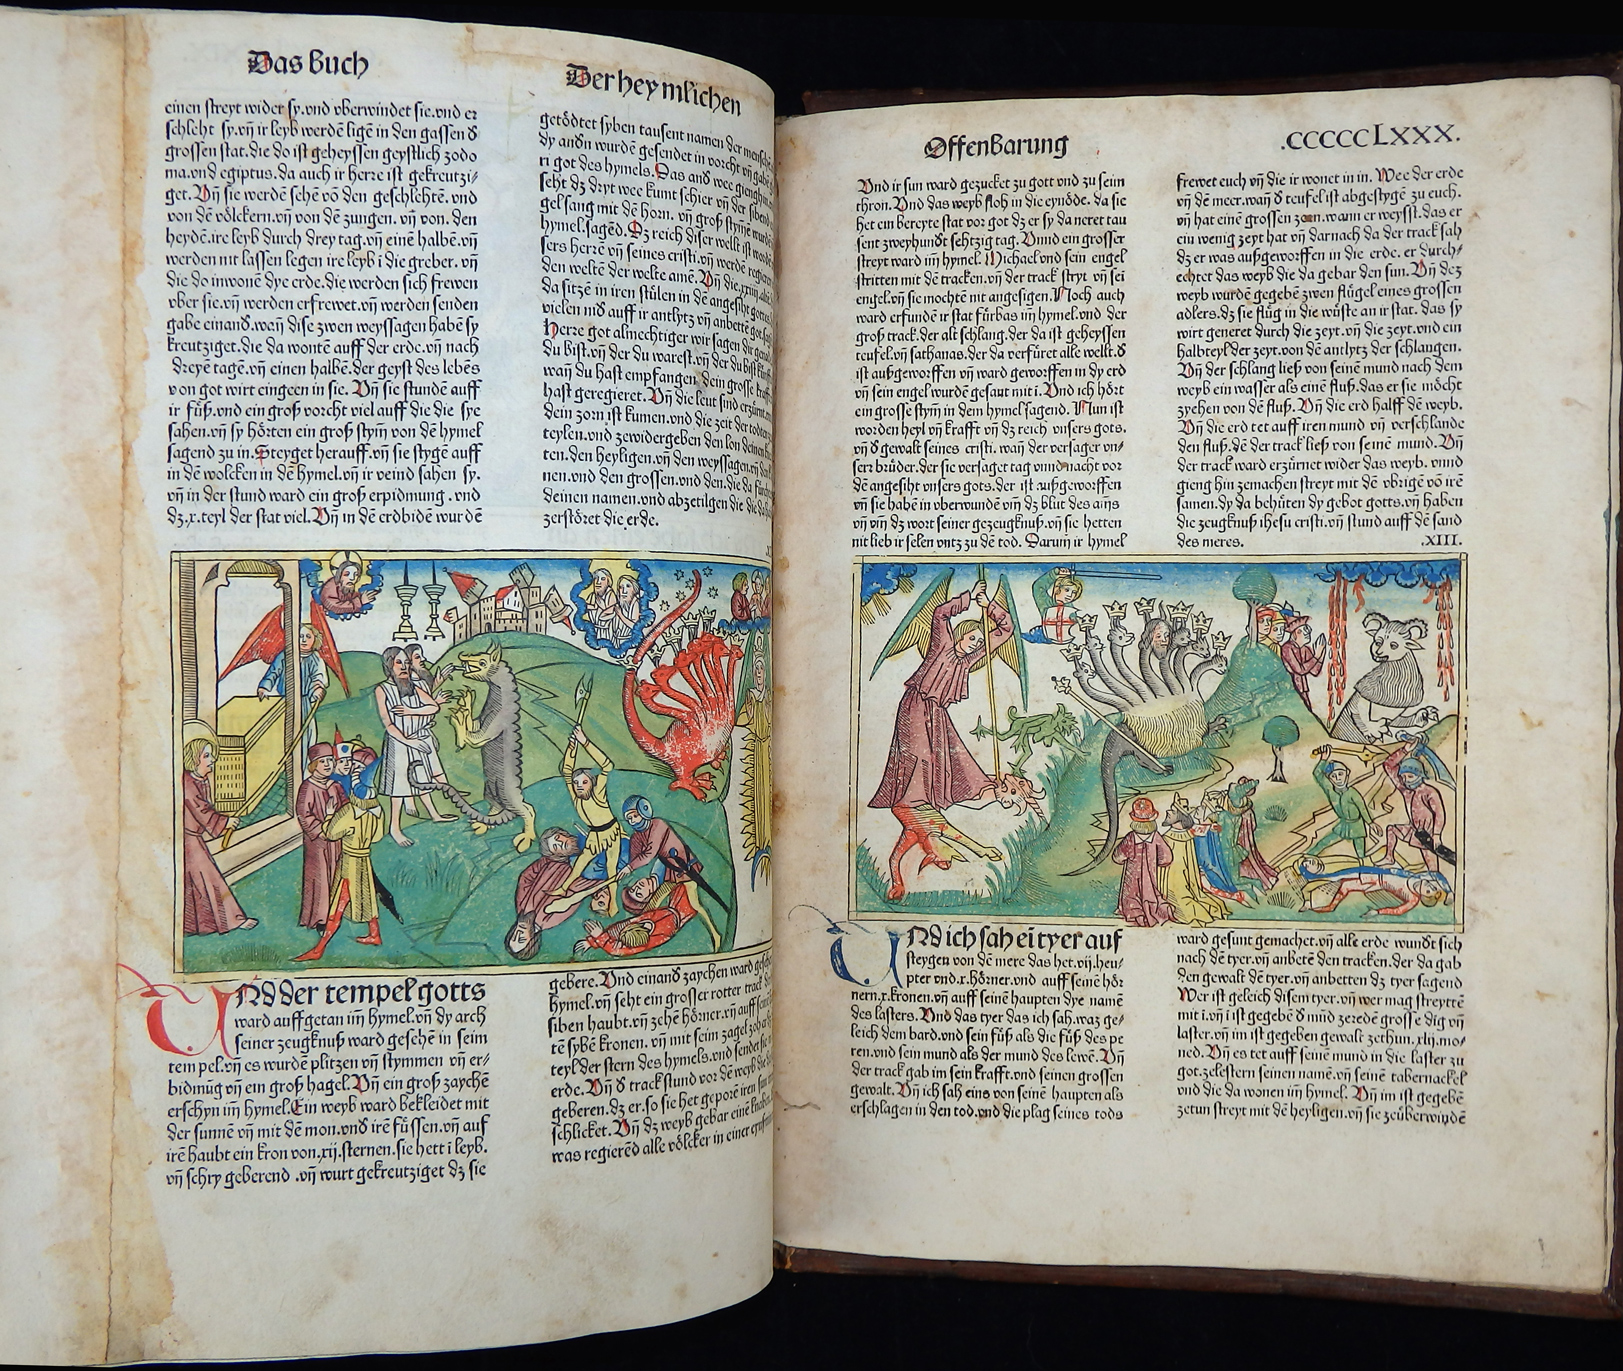 Das Buch
einen streyt wider sy.vnd vberwindet sie.vnd er
schleht sy.vñ ir leyb werdẽ ligẽ in den gassen d̕
grossen stat.die do ist geheyssen geystlich zodo
ma.vnd egiptus.da auch ir herre ist gekreutzi/
get. Vñ sie werdẽ sehẽ võ den geschlehtẽ.vnd
von dẽ võlckern.vñ von dẽ zungen. vñ von. den
heydẽ.ire leyb durch drey tag.vñ einẽ halbẽ.vñ
werden nit lassen legen ire leyb i die greber. vñ
die do inwonẽ dye erde.die werden sich frewen
vber sie.vñ werden erfrewet.vñ werden senden
gabe einand̕.wañ dise zwen weyssagen habẽ sy
kreutziget.die da wontẽ auff der erde.vñ nach
dreyẽ tagẽ.vñ einen halbẽ.der geyst des lebẽs
von got wirt eingeen in sie. Vñ sie stundẽ auff
ir fuͤß.vnd ein groß vorcht viel auff die die sye
sahen.vñ sy hoͤrten ein groß stym̃ von dẽ hymel
sagend zu in.Steyget herauff.vñ sie stygẽ auff
in dẽ wolcken in dẽ hymel.vñ ir veind sahen sy.
vñ in der stund ward ein groß erpidmung.vnd
dz.x.teyl der stat viel. Vñ in dẽ erdbidẽ wurdẽ
Der heymlichen
getoͤdtet syben tausent namen der mensche
dy and̕n wurdẽ gesendet in vorcht vñ gabẽ
ri got des hymels. Das and̕ wee gieng hin
seht dz dryt wee kumt schier vñ der sibend
gel sang mit dẽ horn. vñ groß stym̃e wurdẽ
hymel.sagẽd. Dz reich diser wellt ist worden
sers herrẽ vñ seines cristi.vñ werdẽ regieren
den weltẽ der welte amẽ. Vñ die.xxiiij.alten
da sitzẽ in iren stuͤlen in dẽ angesiht gottes
vielen nid̕ auff ir antlytz vñ anbettẽ got sag
Herre got almechtiger wir sagen dir genad
du bist.vñ der du warest.vñ der du bist kunfft
wañ du hast empfangen dein grosse krafft
hast geregieret. Vñ die leut sind erzuͤrnt
dein zorn ist kumen.vnd die zeit der todten
teylen.vnd zewidergeben den lon deinen
ten.den heyligen.vñ den weyssagen.vñ den
nen.vnd den grossen.vnd den.die da fuͤrchten
deinen namen.vnd abzetilgen die die da
zerstoͤret die erde.
VNd der tempel gotts
ward auffgetan im̃ hymel.vñ dy arch
seiner zeugknuß ward gesehẽ in seim
tempel.vñ es wurdẽ plitzen vñ stymmen vñ er/
bidmũg vñ ein groß hagel. Vñ ein groß zaychẽ
erschyn im̃ hymel. Ein weyb ward bekleidet mit
der sunnẽ vñ mit dẽ mon.vnd̕ irẽ fuͤssen.vñ auf
irẽ haubt ein kron von.xij.sternen.sie hett i leyb.
vñ schry geberend .vñ wurt gekreutziget dz sie
gebere. Vnd einand̕ zaychen ward gesehẽ
hymel.vñ seht ein grosser rotter track
siben haubt.vñ zehẽ hoͤrner.vñ auff seinẽ
tẽ sybẽ kronen. vñ mit seim zagel zoh er dẽ
teyl der stern des hymels.vnd sendet sie
erde. Vñ d̕ track stund vor dẽ weyb die
geberen.dz er.so sie het geporẽ iren sun
schlicket. Vñ dz weyb gebar einẽ knaben
was regierẽd alle voͤlcker in einer eysnin
Offenbarung
.CCCCCLXXX.
Vnd ir sun ward gezucket zu gott vnd zu seim
thron. Vnd das weyb floh in die eynoͤde. da sie
het ein bereyte stat vor got dz er sy da neret tau
sent zweyhund̕t sehtzig tag. Vnnd ein grosser
streyt ward im̃ hymel. Michael vnd sein engel
stritten mit dẽ tracken.vñ der track stryt vñ sei
engel.vñ sie mochtẽ nit angesigen. Noch auch
ward erfundẽ ir stat fuͤrbas im̃ hymel.vnd der
groß track.der alt schlang.der da ist geheyssen
teufel.vñ sathanas.der da verfuͤret alle wellt.d̕
ist außgeworffen vñ ward geworffen in dy erd
vñ sein engel wurdẽ gesant mit i. Vnd ich hoͤrt
ein grosse stym̃ in dem hymel sagend. Nun ist
worden heyl vñ krafft vñ dz reich vnsers gots.
vñ d̕ gewalt seines cristi. wañ der versager vn/
serr bruͤder.der sie versaget tag vnnd nacht vor
dẽ angesiht vnsers gots.der ist außgeworffen
vñ sie habẽ in vberwundẽ vm̃ dz blut des lams
vñ vm̃ dz wort seiner gezeugknuß.vñ sie hetten
nit lieb ir selen vntz zu dẽ tod. Darum̃ ir hymel
frewet euch vñ die ir wonet in in. Wee der erde
vñ dẽ meer.wañ d̕ teufel ist abgestygẽ zu euch.
vñ hat einẽ grossen zorn.wann er weysst.das er
ein wenig zeyt hat vñ darnach da der track sah
dz er was außgeworffen in die erde. er durch/
echtet das weyb die da gebar den sun. Vñ dez
weyb wurdẽ gegebẽ zwen fluͤgel eines grossen
adlers.dz sie fluͤg in die wuͤste an ir stat. das sy
wirt generet durch die zeyt.vñ die zeyt.vnd ein
halbteyl der zeyt.von dẽ antlytz der schlangen.
Vñ der schlang ließ von seinẽ mund nach dem
weyb ein wasser als einen fluß.das er sie moͤcht
zyehen von dẽ fluß. Vñ die erd halff dẽ weyb.
Vñ die erd tet auff iren mund vñ verschlande
den fluß.dẽ der track ließ von seinẽ mund. Vñ
der track ward erzuͤrnet wider das weyb. vnnd
gieng hin zemachen streyt mit dẽ vbrigẽ võ irẽ
samen.dy da behuͤten dy gebot gotts.vñ haben
die zeugknuß ihesu cristi.vñ stund auff dẽ sand
des meres.
.XIII.
VNd ich sah eĩ tyer auf
steygen von dẽ mere das het.vij.heu/
pter vnd.x.hoͤrner.vnd auff seinẽ hoͤr
nern.x.kronen.vñ auff seinẽ haupten dye namẽ
des lasters. Vnd das tyer das ich sah.waz ge/
leich dem bard.vnd sein fuͤß als die fuͤß des pe
ren.vnd sein mund als der mund des lewẽ. Vñ
der track gab im sein krafft.vnd seinen grossen
gewalt. Vñ ich sah eins von seinẽ haupten als
erschlagen in den tod.vnd die plag seines tods
ward gesunt gemachet.vñ alle erde wund̕t sich
nach dẽ tyer.vñ anbetẽ den tracken.der da gab
den gewalt dẽ tyer.vñ anbetten dz tyer sagend
Wer ist geleich disem tyer.vñ wer mag streytẽ
mit i.vñ i ist gegebẽ d̕ mũd zeredẽ grosse dig vñ
laster.vñ im ist gegeben gewalt zethun.xlij.mo/
ned. Vñ es tet auff seinẽ mund in die laster zu
got.zelestern seinen namẽ.vñ seinẽ tabernackel
vnd die da wonen im̃ hymel. Vñ im ist gegebẽ
zetun streyt mit dẽ heyligen.vñ sie zeuͤberwindẽ